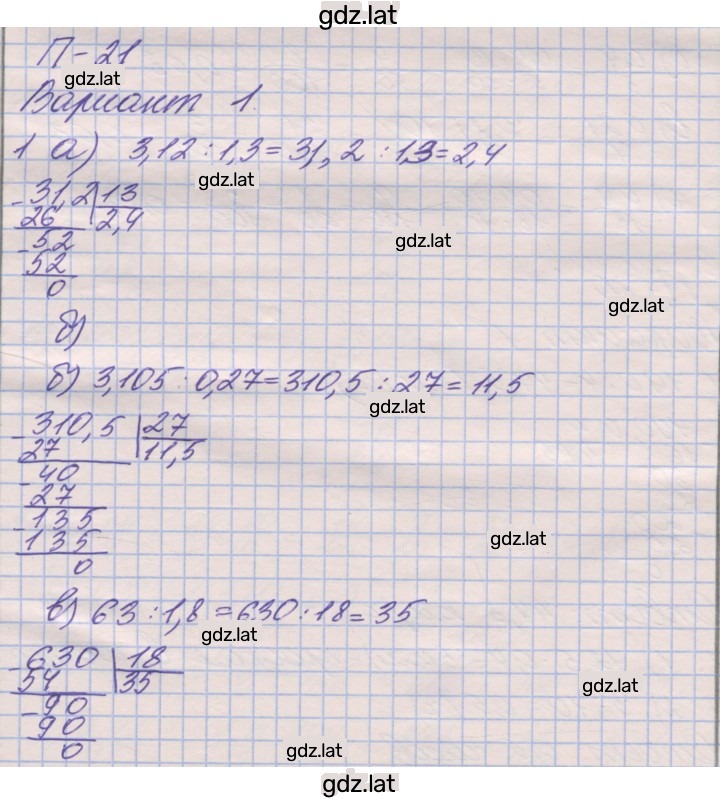 gdz.lat
П-21
gdz.lat
Вариант 1.
1 а) 3,12 : 1,3 = 31,2 : 13 = 2,4
gdz.lat
- 31,2 | 13
26 2,4
gdz.lat
- 52
52
0
gdz.lat
б)
б) 3,105 : 0,27 = 310,5 : 27 = 11,5
gdz.lat
- 310,5 | 27
27 11,5
- 40
27
- 135
135
gdz.lat
0
в) 63 : 1,8 = 630 : 18 = 35
gdz.lat
- 630 | 18
54 35
gdz.lat
- 90
90
0
gdz.lat
gdz.lat